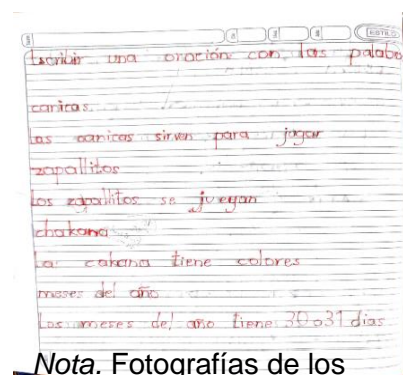 ESTILO
Escribir una oración con las palabo
canicas
Las canicas sirven para jugar
zapallitos
Los zapallitos se juegan
chakana
La cakana tiene colores
meses del año
Los meses del año tiene 30 o 31 dias
Nota. Fotografías de los